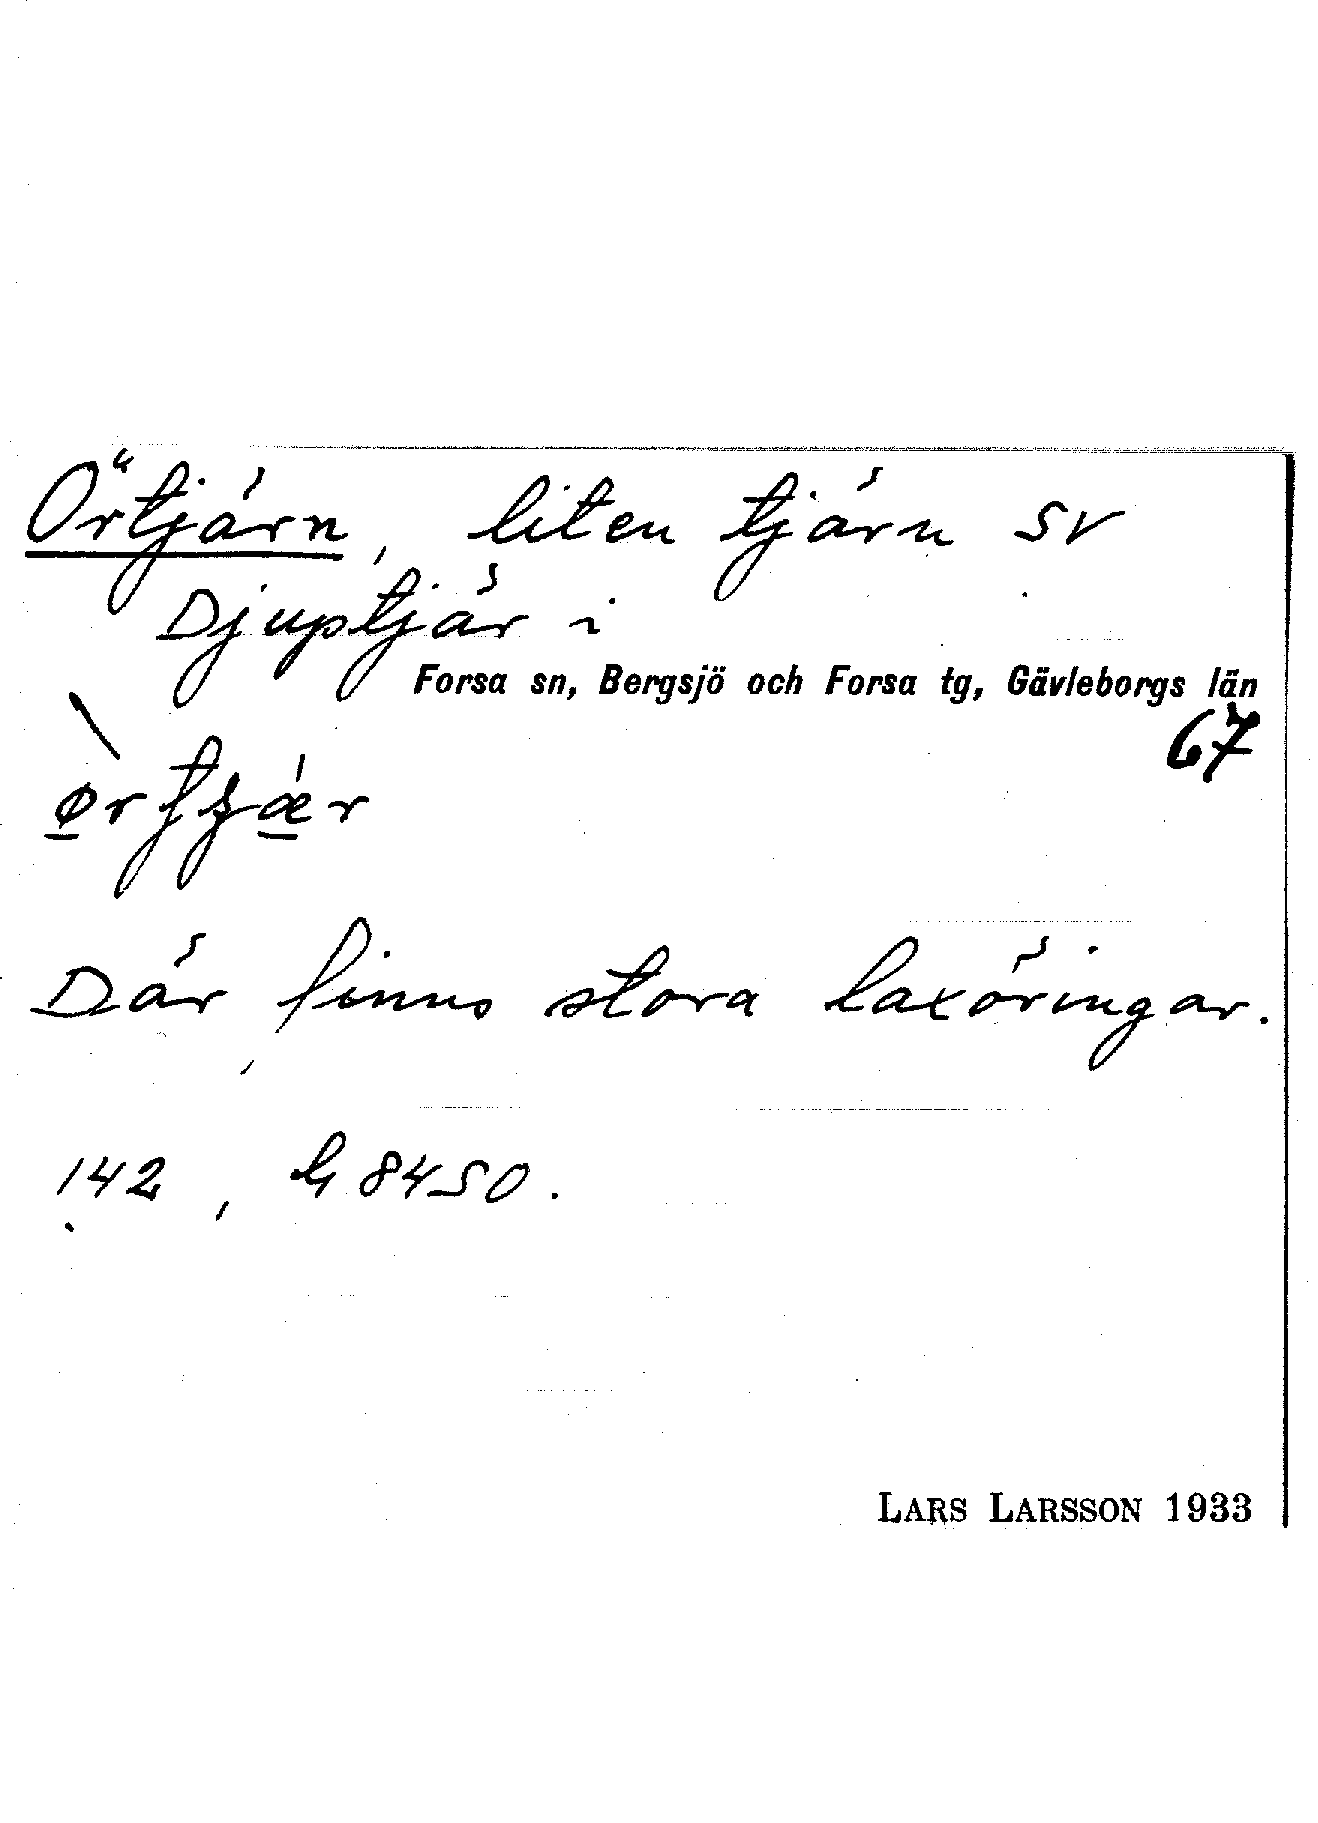 Örtjärn, liten tjärn SV
Djuptjär i
Forsa sn, Bergsjö och Forsa tg, Gävleborgs län
67
Där finns stora laxöringar.
142, G 8450.
LARS LARSSON 1933